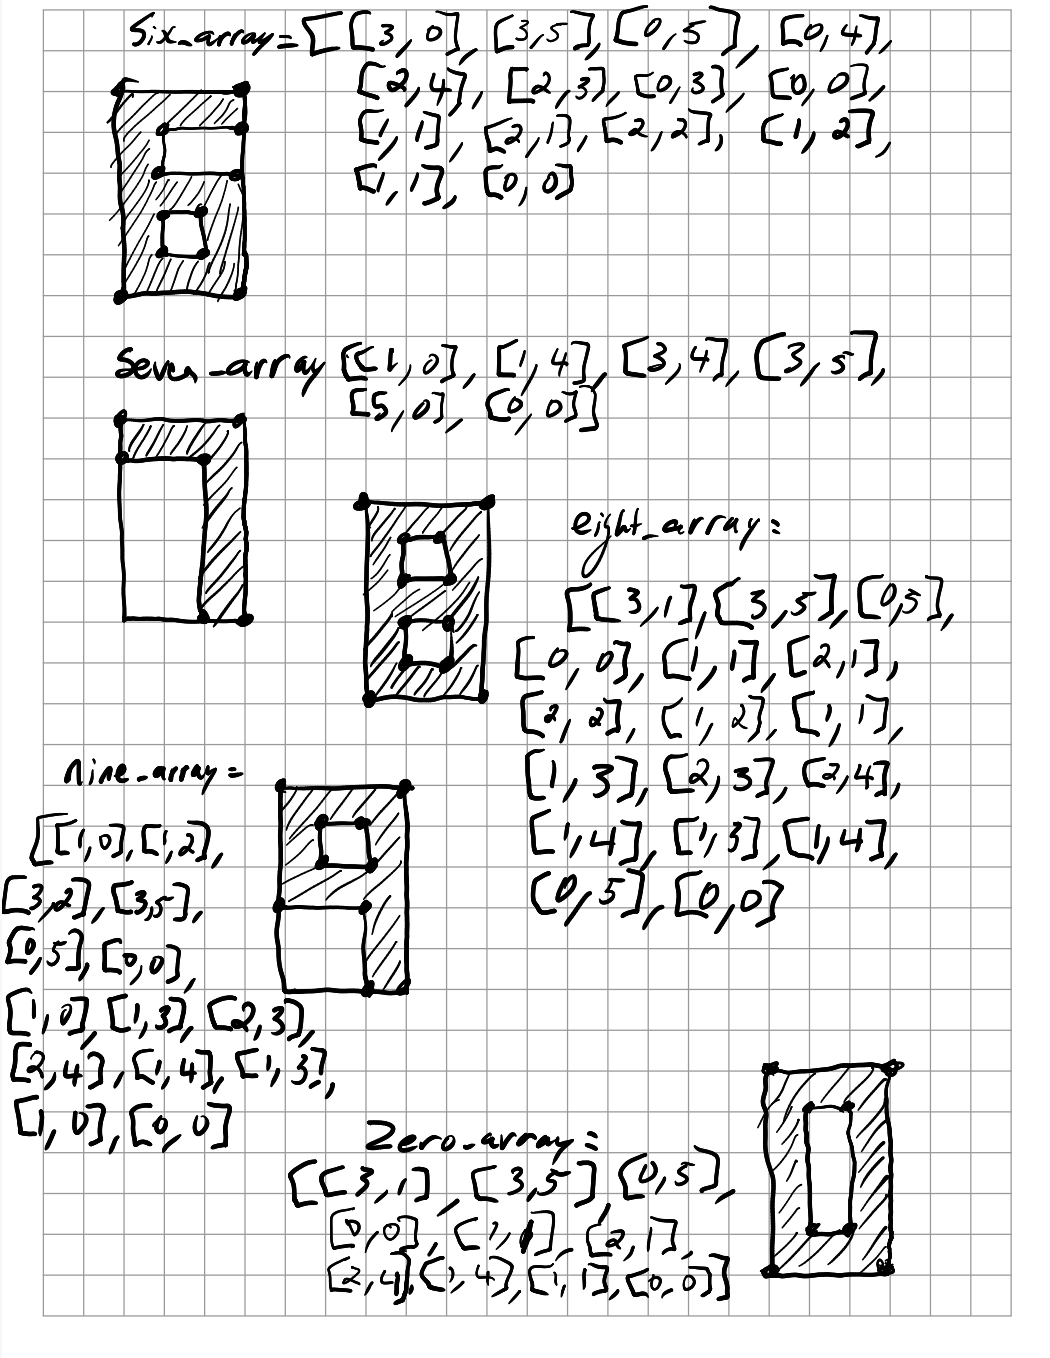 Six_array=[[3,0],[3,5],[0,5],[0,4],
[2,4],[2,3],[0,3],[0,0],
[1,1],[2,1],[2,2],[1,2],
[1,1],[0,0]
Seven_array[[1,0],[1,4],[3,4],[3,5],
[5,0],[0,0]]
eight_array=
[[3,1],[3,5],[0,5],
[0,0],[1,1],[2,1],
[2,2],[1,2],[1,1],
[1,3],[2,3],[2,4],
[1,4],[1,3],[1,4],
[0,5],[0,0]
nine_array=
[[1,0],[1,2],
[3,2],[3,5],
[0,5],[0,0],
[1,0],[1,3],[2,3],
[2,4],[1,4],[1,3],
[1,0],[0,0]
Zero_array=
[[3,1],[3,5],[0,5],
[0,0],[1,1],[2,1],
[2,4],[1,4],[1,1],[0,0]]